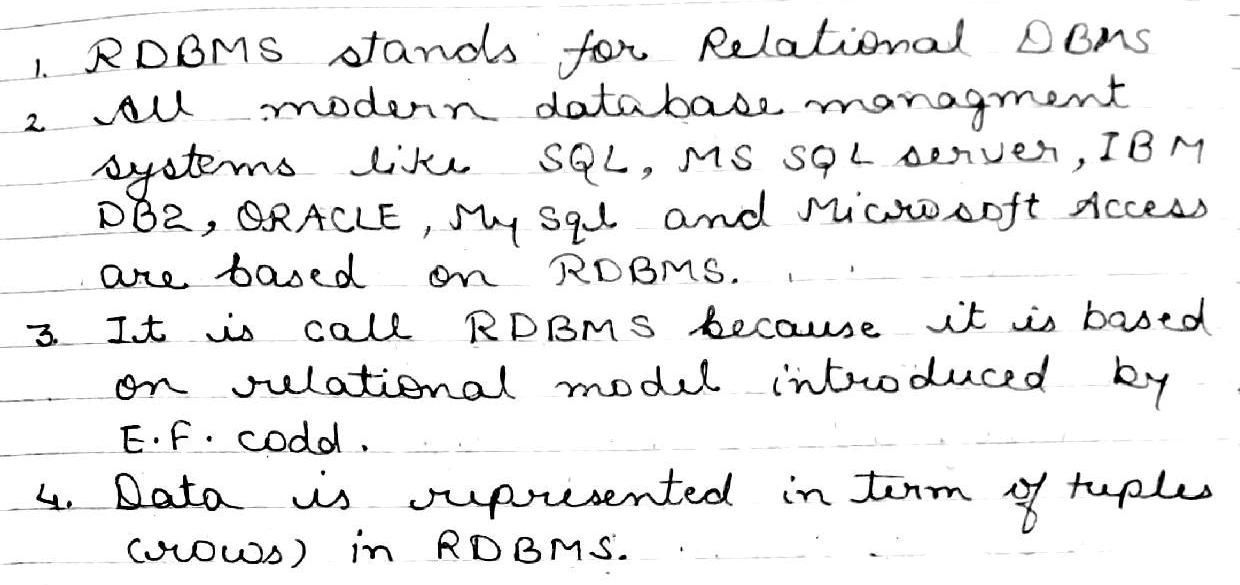 1. RDBMS stands for Relational DBMS
2 All modern database managment
systems like SQL, MS SQL server, IBM
DB2, ORACLE, My Sql and Microsoft Access
are based on RDBMS.
3. It is call RDBMS because it is based
on relational model introduced by
E.F. codd.
4. Data is represented in term of tuples
(rows) in RDBMS.